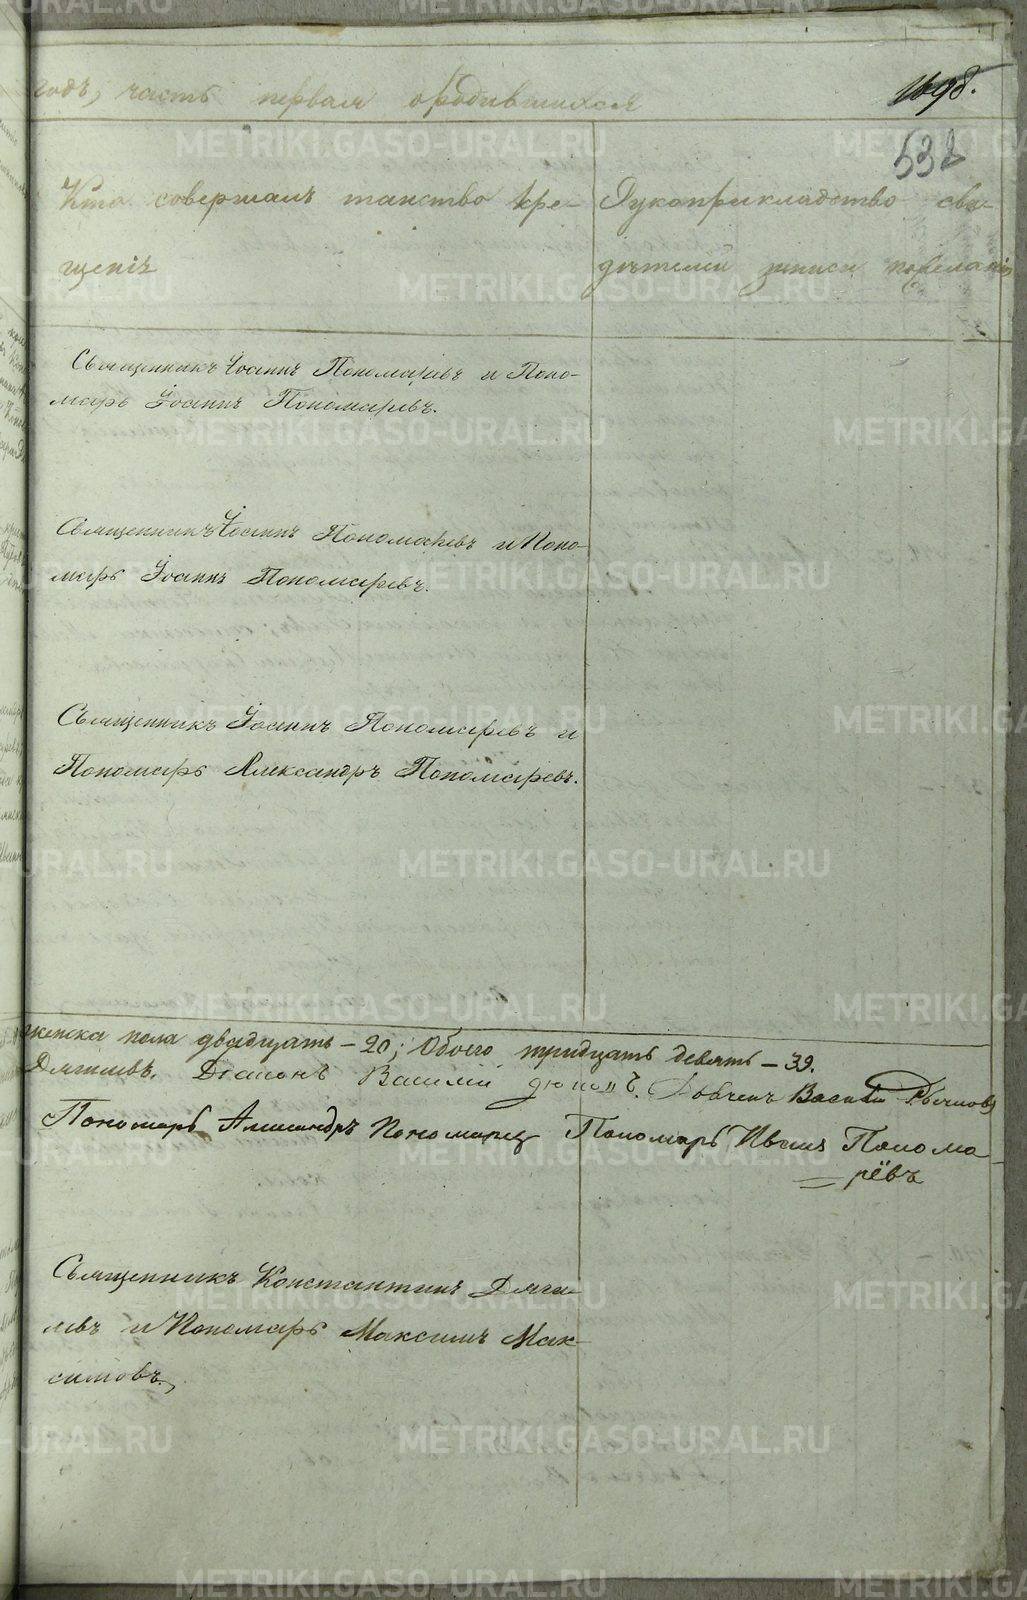 годъ, часть первая о родившихся
1698.
532
Кто совершалъ таинство кре-
щенія
Рукоприкладство сви-
дѣтелей записи по желанію
Священникъ Іоаннъ Пономаревъ и Поно-
марь Іоаннъ Пономаревъ.
Священникъ Іоаннъ Пономаревъ и Поно-
марь Іоаннъ Пономаревъ.
Священникъ Іоаннъ Пономаревъ и
Пономарь Александръ Пономаревъ.
женска пола двадцать – 20; Обоего тридцать девять – 39.
Дягилевъ. Діаконъ Василій Василій
Пономарь Александръ Пономарь Иванъ Понома-
рёвъ
Священникъ Константинъ Дяги-
левъ и Пономарь Максимъ Мак-
симовъ.
METRIKI.GASO-URAL.RU